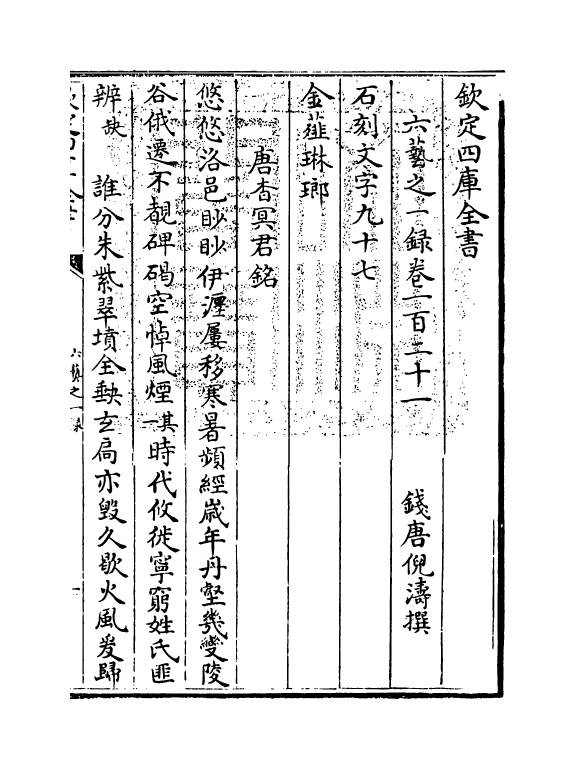 欽定四庫全書
六藝之一錄卷一百二十一
錢唐倪濤撰
石刻文字九十七
金薤琳瑯
唐杳冥君銘
悠悠洛邑眇眇伊瀍屢移寒暑頻經歲年丹壑幾變陵
谷俄遷不覩碑碣空悼風煙其一時代攸徙寧窮姓氏匪
辨缺 誰分朱紫翠墳全缺玄扃亦毀久歇火風爰歸
六藝之一錄
一